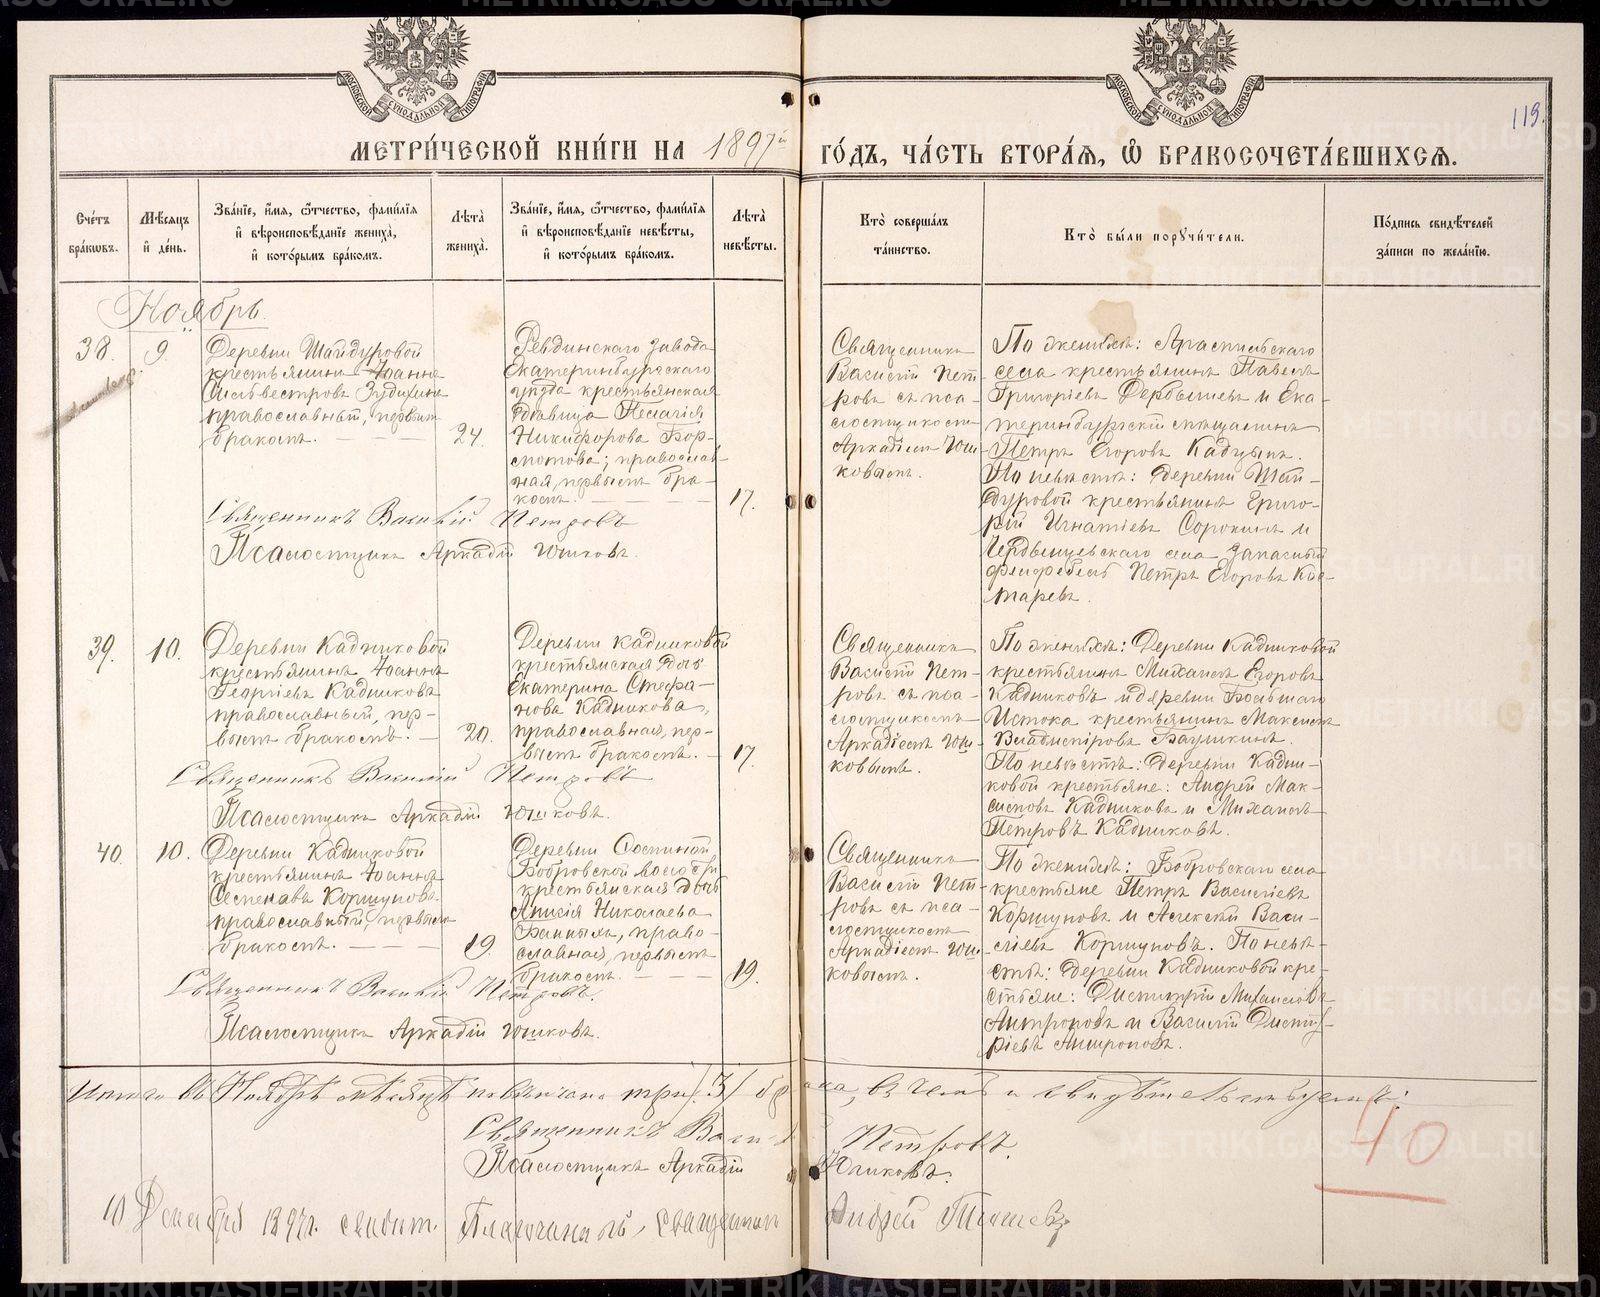 МЕТРИ́ЧЕСКОЙ КНИ́ГИ НА 1897й ГО́ДЪ, ЧА́СТЬ ВТОРА́Я, Ѡ҆ БРАКОСОЧЕТА́ВШИХСЯ.
119.
Сче́тъ бра́кѡвъ.
Мѣ́сяцъ и҆ де́нь.
Зва́нїе, и҆́мя, ѻ҆́тчество, фами́лїя и҆ вѣроисповѣ́данїе жениха̀, и҆ кото́рымъ бра́комъ.
Лѣ́та жениха̀.
Зва́нїе, и҆́мя, ѻ҆́тчество, фами́лїя и҆ вѣроисповѣ́данїе невѣ́сты, и҆ кото́рымъ бра́комъ.
Лѣ́та невѣ́сты.
Кто̀ соверша́лъ та́инство.
Кто̀ бы́ли порꙋчи́тели.
По́дпись свидѣ́телей за́писи по жела́нїю.
Ноябрь
38.
9.
Деревни Шайдуровой
крестьянинъ Іоаннъ
Сильвестровъ Зудихинъ
православный, первым
бракомъ.
24.
Ревдинскаго завода
Екатеринбургскаго
уѣзда крестьянская
дѣвица Пелагія
Никифорова Бор-
мотова; православ-
ная, первымъ бра-
комъ.
17.
Священникъ
Василій Пет-
ровъ съ пса-
ломщикомъ
Аркадіемъ Юш-
ковымъ.
По женихѣ: Арамильскаго
села крестьянинъ Павелъ
Григоріевъ Дербышевъ и Ека-
теринбургскій мѣщанинъ
Петръ Егоровъ Кадушин.
По невѣстѣ: деревни Шай-
дуровой крестьянинъ Григо-
рій Игнатіевъ Сорокинъ и
села запасный
фельдфебель Петръ Егоровъ Кос-
таревъ.
Священникъ Василій Петровъ
Псаломщикъ Аркадій Юшковъ.
39.
10.
Деревни Кадниковой
крестьянинъ Іоаннъ
Георгіевъ Кадниковъ
православный, пер-
вымъ бракомъ.
20.
Деревни Кадниковой
крестьянская дочь
Екатерина Стефа-
нова Кадникова,
православная, пер-
вымъ бракомъ.
17.
Священникъ
Василій Пет-
ровъ съ пса-
ломщикомъ
Аркадіемъ Юш-
ковымъ.
По женихѣ: Деревни Кадниковой
крестьянинъ Михаилъ Егоровъ
Кадниковъ и деревни Большаго
Истока крестьянинъ Максимъ
Владиміровъ Баушкинъ.
По невѣстѣ: деревни Кадни-
ковой крестьяне: Андрей Мак-
симовъ Кадниковъ и Михаилъ
Петровъ Кадниковъ.
Священникъ Василій Петровъ
Псаломщикъ Аркадій Юшковъ.
40.
10.
Деревни Кадниковой
крестьянинъ Іоаннъ
Семеновъ Коршуновъ
православный, первымъ
бракомъ.
19.
Деревни Сосниной
Бобровской волости
крестьянская дочь
Анисія Николаева
православная, первымъ
бракомъ.
19.
Священникъ
Василій Пет-
ровъ съ пса-
ломщикомъ
Аркадіемъ Юш-
ковымъ.
По женихѣ: Бобровскаго села
крестьяне Петръ Василіевъ
Коршуновъ и Алексѣй Васи-
ліевъ Коршуновъ. По невѣ-
стѣ: деревни Кадниковой кре-
стьяне: Димитрій Михаиловъ
Антроповъ и Василій Димит-
ріевъ Антроповъ.
Священникъ Василій Петровъ.
Псаломщикъ Аркадій Юшковъ.
Итого въ Ноябрѣ мѣсяцѣ повѣнчано три /3/ брака, въ чемъ и свидѣтельствуемъ:
Священникъ Василій Петровъ.
Псаломщикъ Аркадій Юшковъ.
40
10 Декабря 1897г. свидѣт. Благочинный, Священник Андрей
METRIKI.GASO-URAL.RU